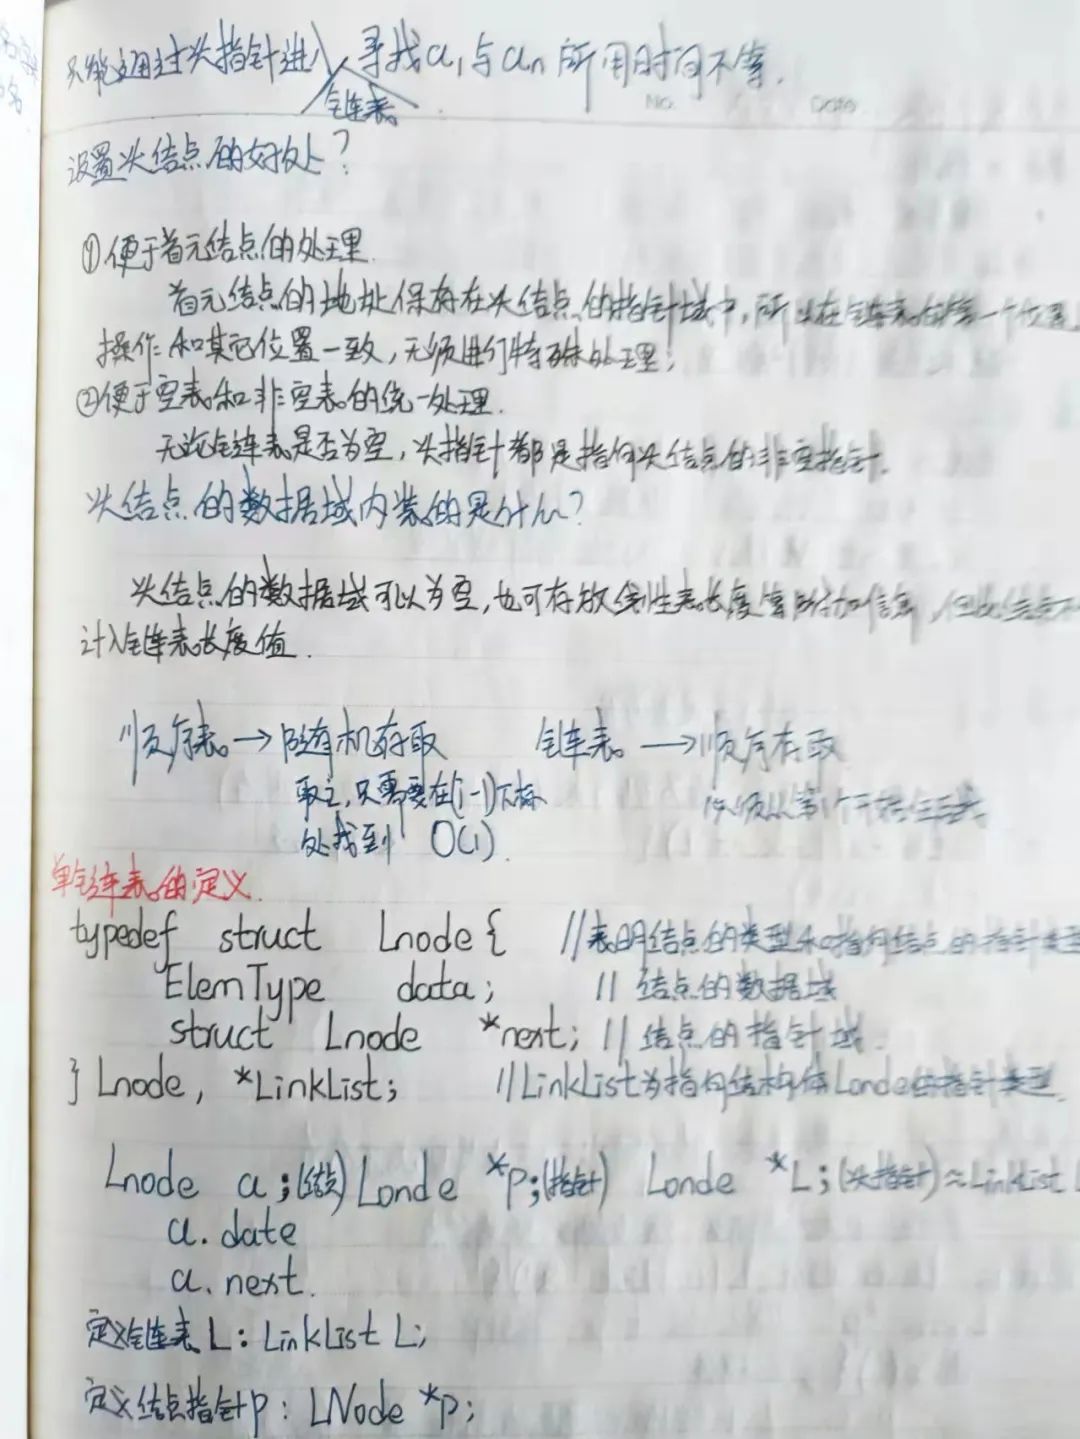 只能通过头指针进入链表 寻找a₁与aₙ所用时间不等.
No. Date
设置头结点的好处?
①便于首元结点的处理.
首元结点的地址保存在头结点的指针域中,所以在链表的第一个位置
操作和其它位置一致,无须进行特殊处理;
②便于空表和非空表的统一处理.
无论链表是否为空,头指针都是指向头结点的非空指针.
头结点的数据域内装的是什么?
头结点的数据域可以为空,也可存放线性表长度等附加信息,但此结点不
计入链表长度值.
顺序表→随机存取 链表→顺序存取
取之,只需要在(i-1)下标 必须从第1个开始往后
处找到 O(1).
单链表的定义.
typedef struct Lnode{ //表明结点的类型和指向结点的指针类型
ElemType data; //结点的数据域
struct Lnode *next; //结点的指针域.
}Lnode, *LinkList; //LinkList为指向结构体Londe的指针类型.
Lnode a;(结点) Londe *p;(指针) Londe *L;(头指针)≈LinkList L
a.date
a.next.
定义链表L: LinkList L;
定义结点指针p: LNode *p;